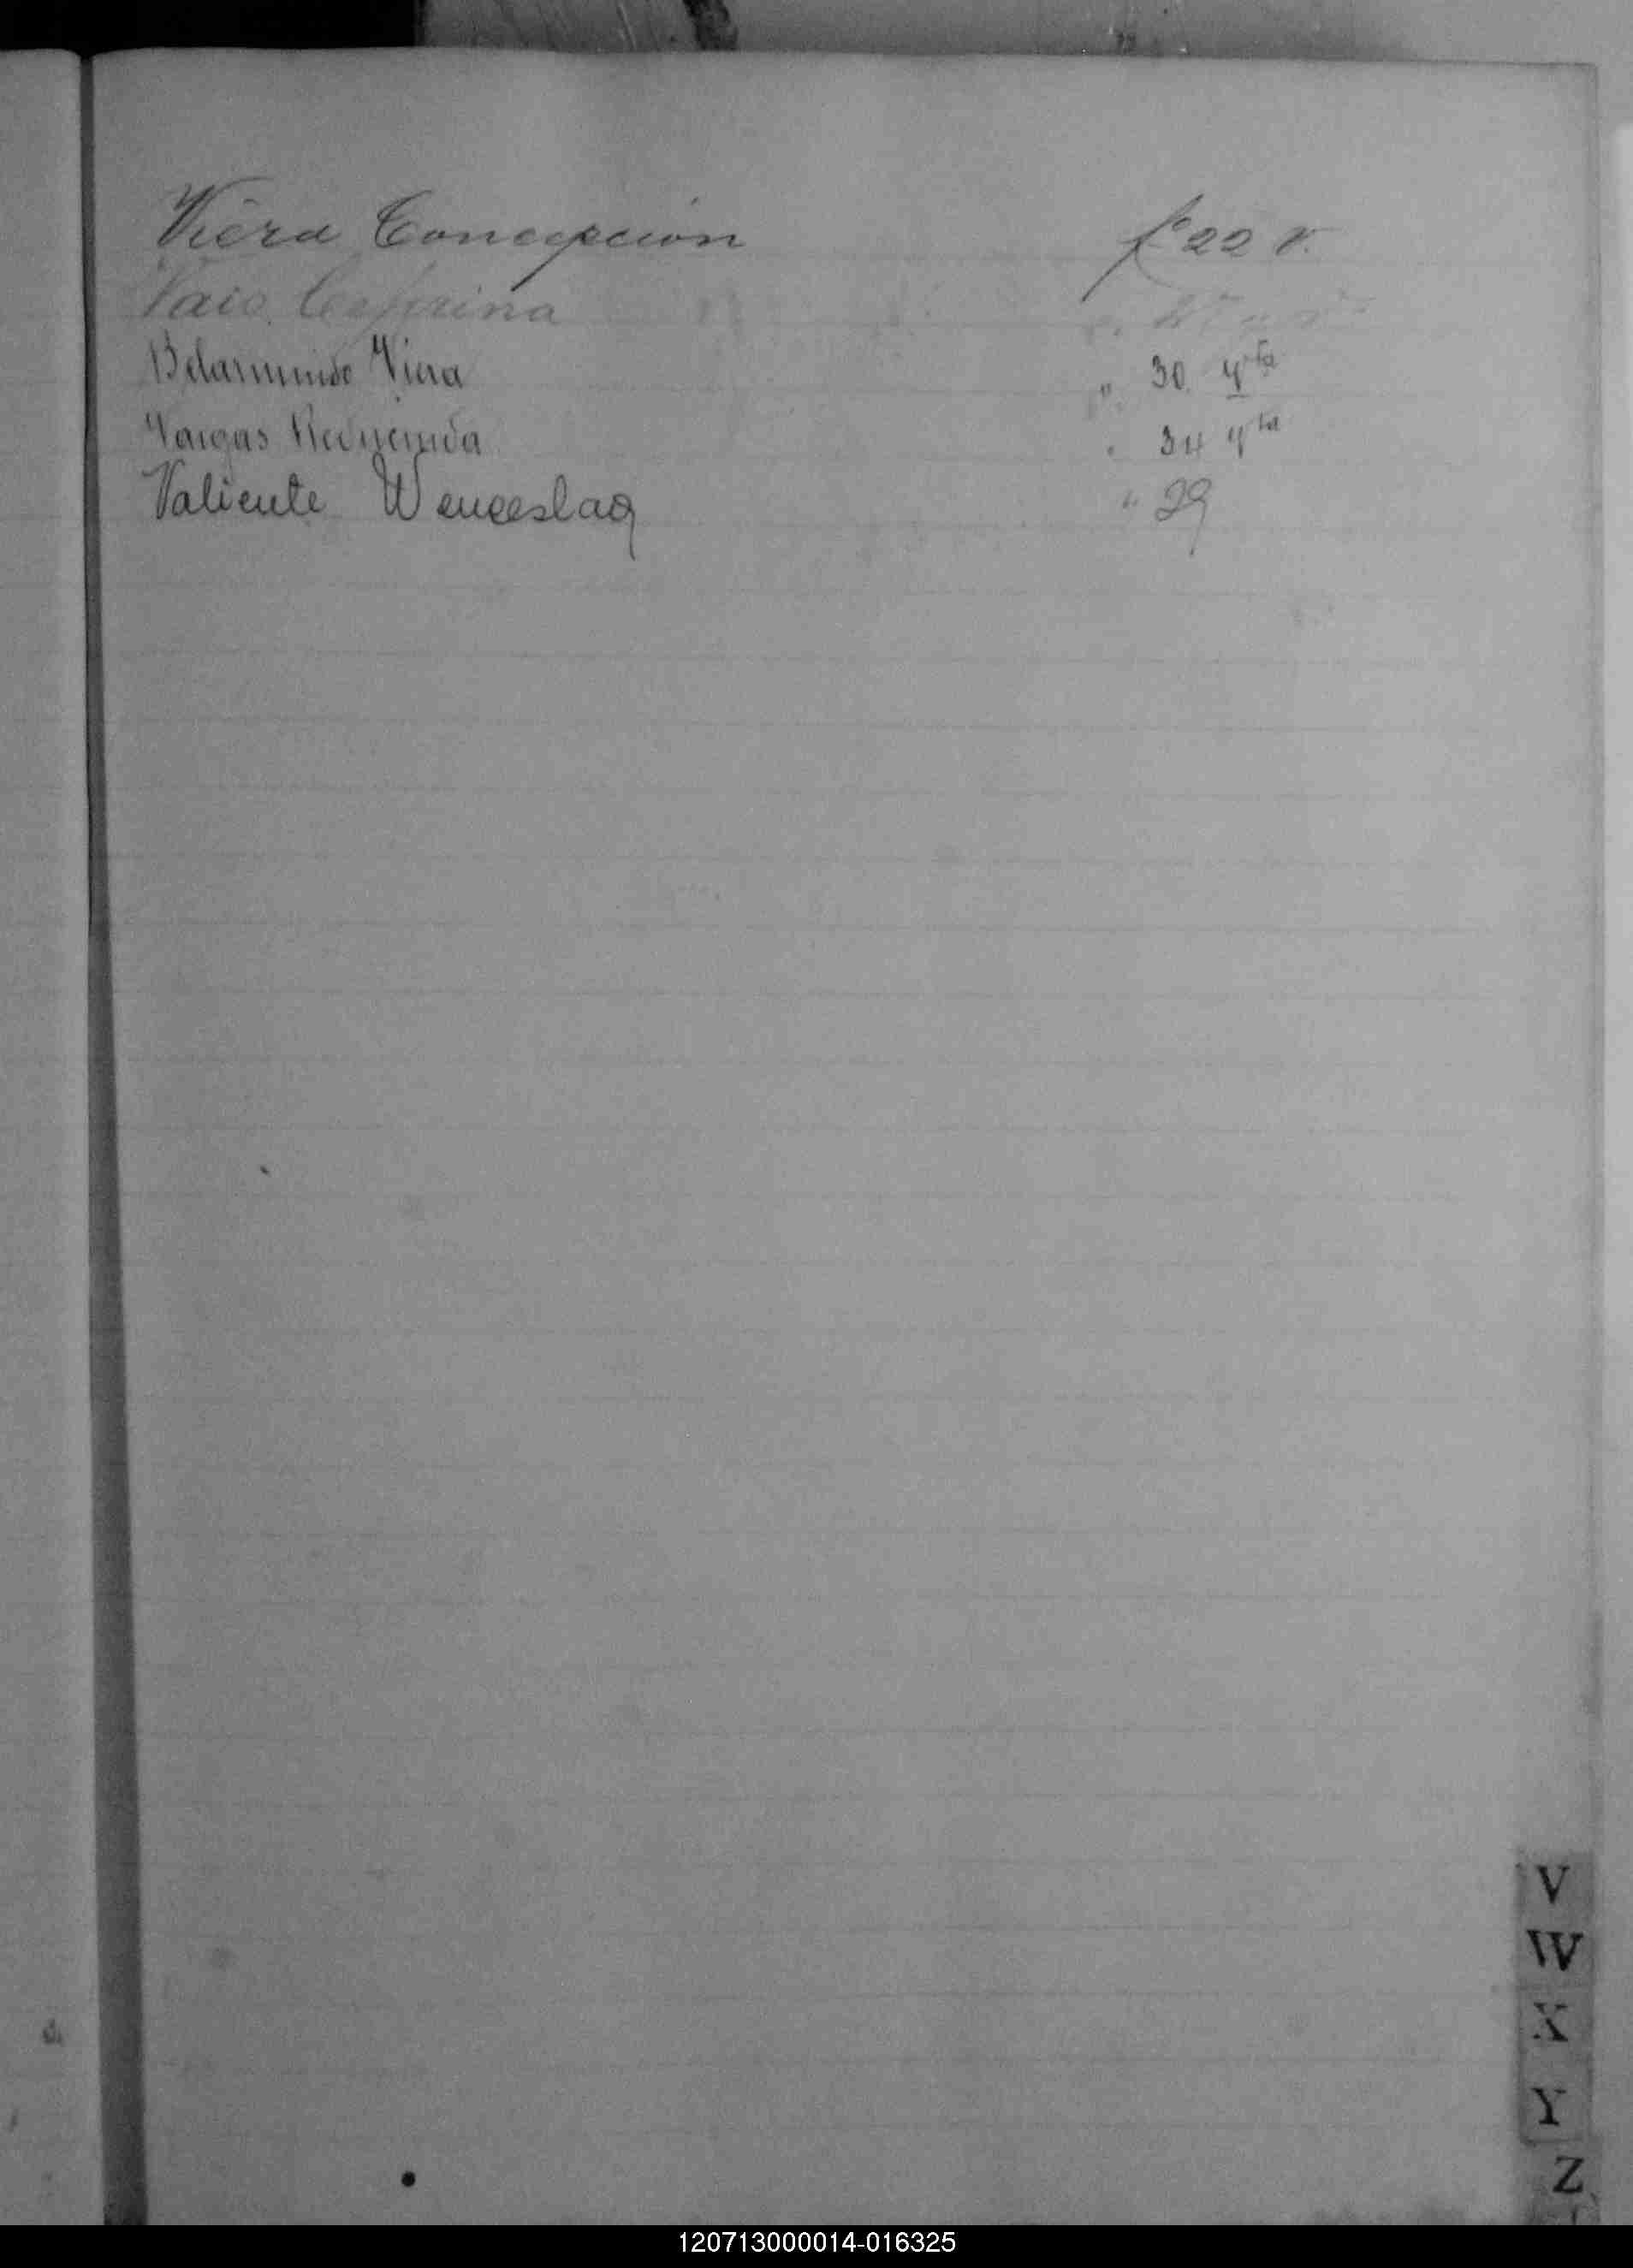 Viera Concepcion fº 22 v.
Vaio Ceferina
Belarmindo Viera " 30. vta
Vargas " 34 vta
Valiente Wenceslao " 29
V
W
X
Y
Z
120713000014-016325